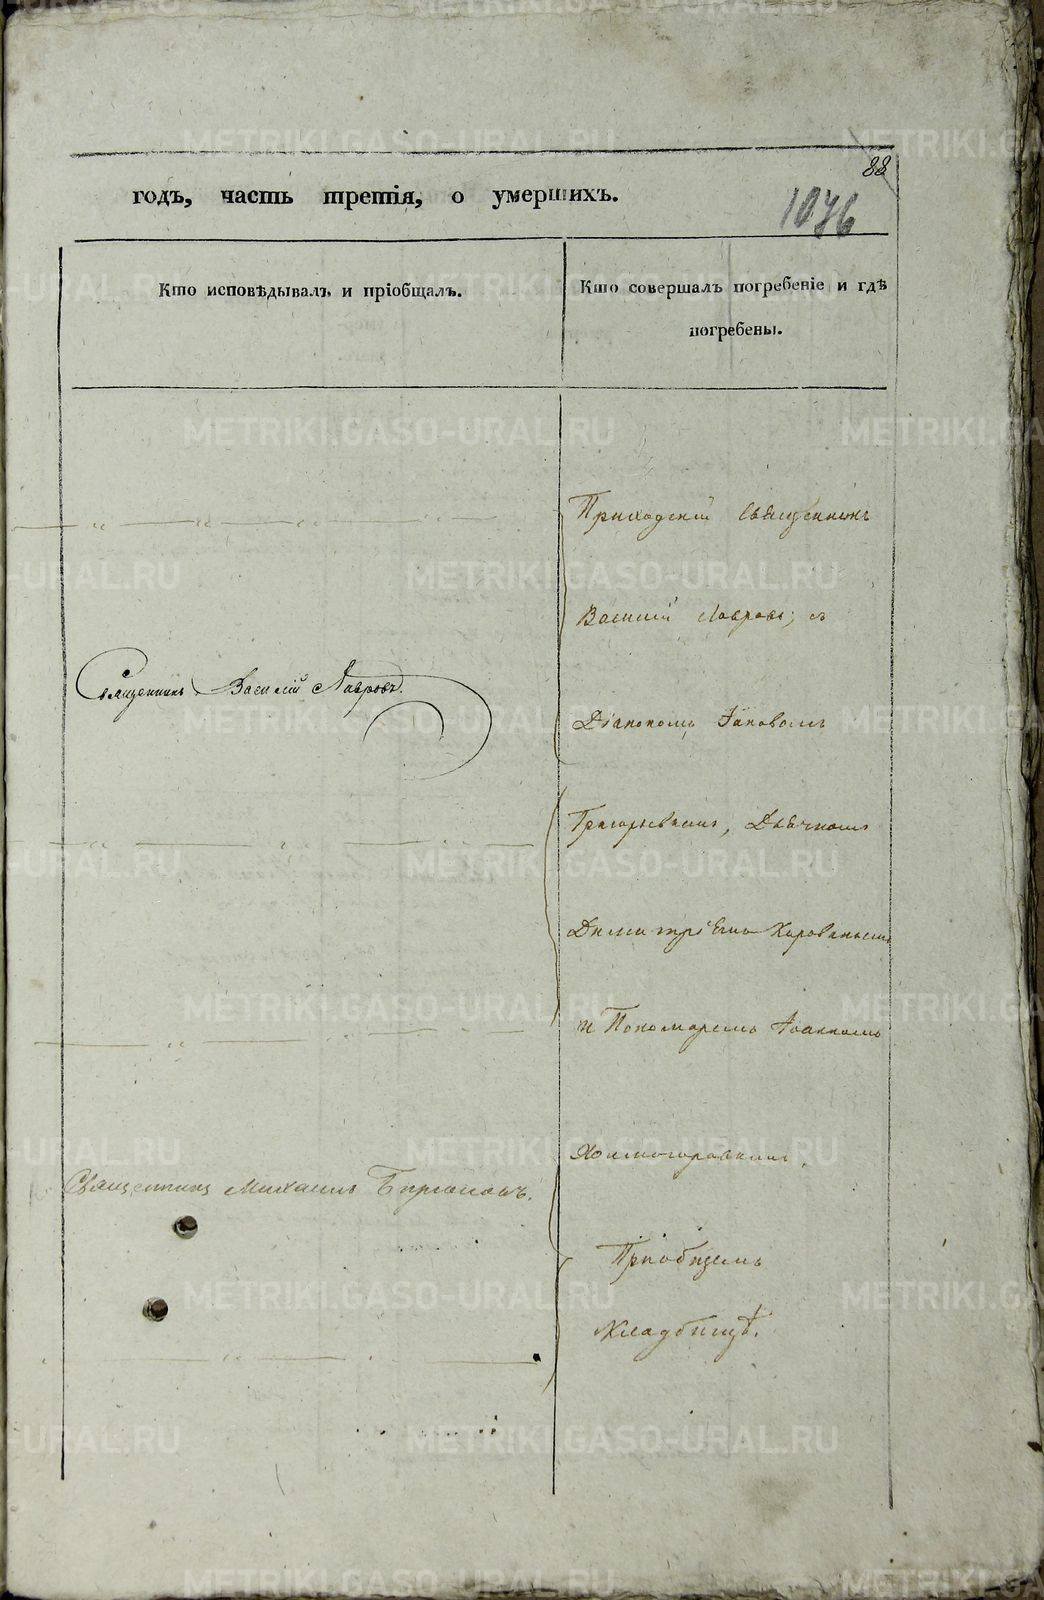 88
годъ, часть третія, о умершихъ.
1076
Кто исповѣдывалъ и пріобщалъ.
Кто совершалъ погребеніе и гдѣ
погребены.
Приходскій Священникъ
Василій Лавровъ; съ
Священникъ Василій Лавровъ.
Діакономъ Іаковомъ
Григорьевымъ, Дьячкомъ
Димитріемъ
и Пономаремъ Іоанномъ
Холмогоровымъ,
Священникъ Михаилъ Бирюковъ.
Приобщемъ
Кладбищѣ.
METRIKI.GASO-URAL.RU